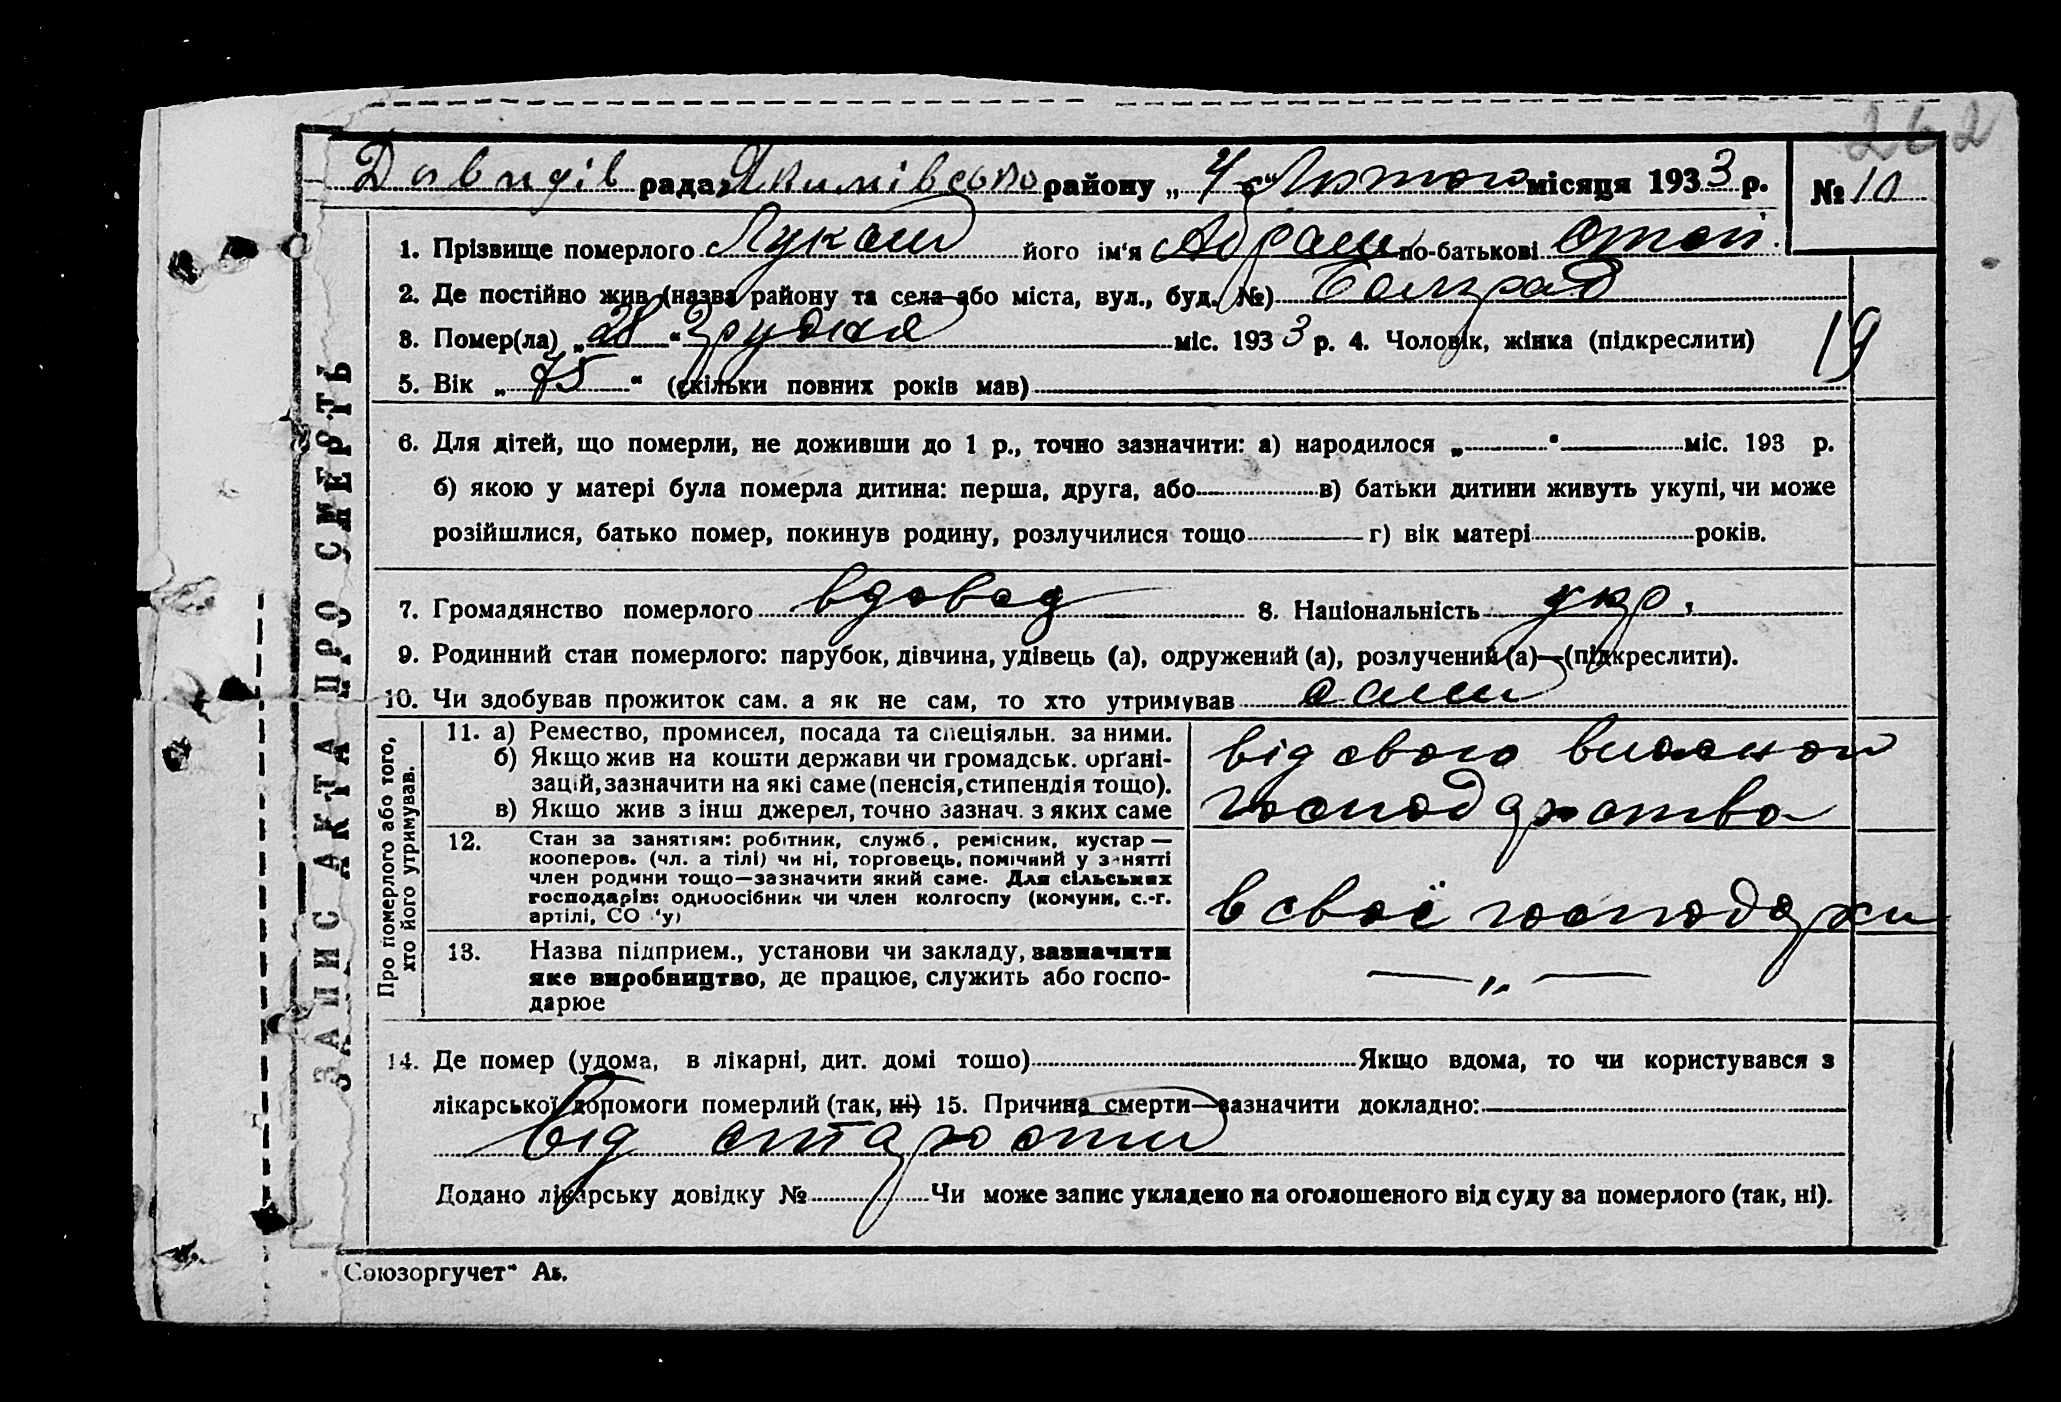 262
Давидів рада Якимівсько району „ 4 “ Лютого місяця 1933 р. № 10
1. Прізвище померлого Лукаш його ім‘я Абрам по-батькові Степ.
2. Де постійно жив (назва району та села або міста, вул., буд. №) Болград
3. Помер(ла) „ 28 “ Грудня міс. 1933 р. 4. Чоловік, жінка (підкреслити) 19
5. Вік „ 75 “ (скільки повних років мав)
6. Для дітей, що померли, не доживши до 1 р., точно зазначити: а) народилося „ “ міс. 193 р.
б) якою у матері була померла дитина: перша, друга, або в) батьки дитини живуть укупі, чи може
розійшлися, батько помер, покинув родину, розлучилися тощо г) вік матері років.
7. Громадянство померлого вдовец 8. Національність укр.
9. Родинний стан померлого: парубок, дівчина, удівець (а), одружений (а), розлучений (а)—(підкреслити).
10. Чи здобував прожиток сам. а як не сам, то хто утримував сам
11. а) Ремество, промисел, посада та спеціяльн. за ними.
б) Якщо жив на кошти держави чи громадськ. орґані-
зацій, зазначити на які саме (пенсія, стипендія тощо).
в) Якщо жив з інш джерел, точно зазнач. з яких саме
від свого власного
господарства
12. Стан за занятіям: робітник, служб., ремісник, кустар —
кооперов. (чл. а тілі) чи ні, торговець, помічний у занятті
член родини тощо—зазначити який саме. Для сільських
господарів: одноосібник чи член колгоспу (комуни, с.-г.
артілі, СО ‘у)
в свої господарки
13. Назва підприєм., установи чи закладу, зазначити
яке виробництво, де працює, служить або госпо-
дарює
— „ —
14. Де помер (удома, в лікарні, дит. домі тошо) Якщо вдома, то чи користувався з
лікарської допомоги померлий (так, ні) 15. Причина смерти—зазначити докладно:
від старости
Додано лікарську довідку № Чи може запис укладено на оголошеного від суду за померлого (так, ні).
„Союзоргучет“ Аб.
ЗАПИС АКТА ПРО СМЕРТЬ
Про померлого або того,
хто його утримував.